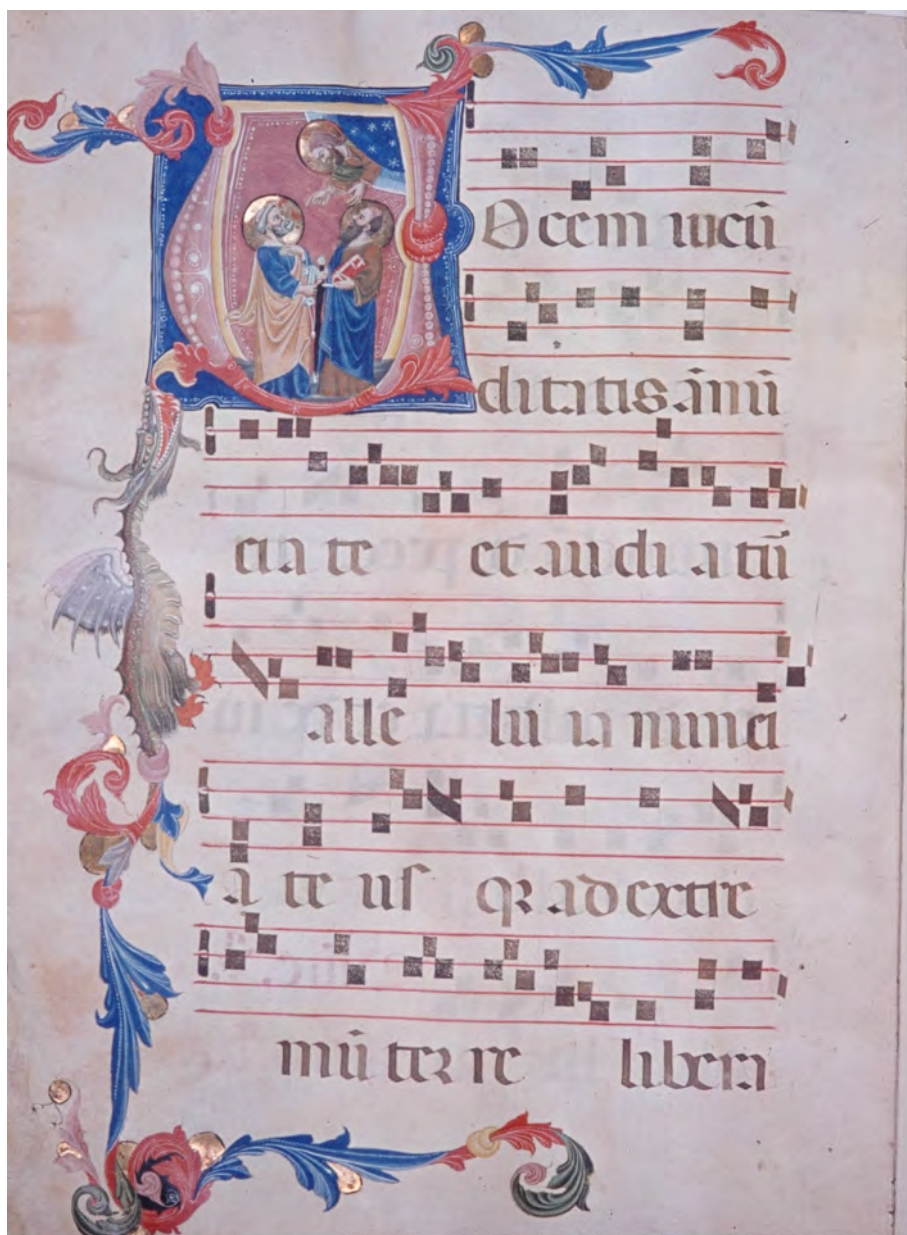 VOcem iucū
ditatis ānū
cia te et au di a tū
alle lu ia nunci
a te us qȝ ad extre
mū ter re libera